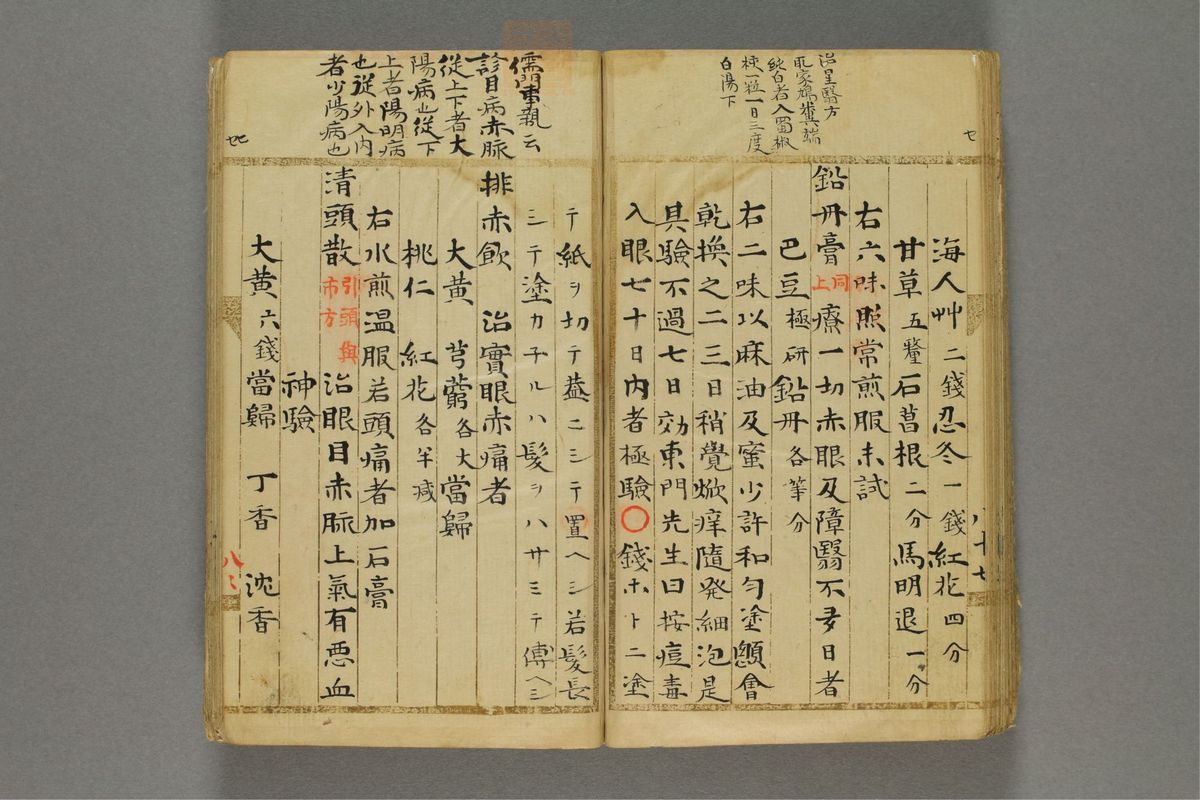 治星翳方
取家鳩糞端
純白者入蜀椒
核一粒一日三度
白湯下
海人艸 二錢 忍冬 一錢 紅花 四分
甘草 五釐 石菖根 二分 馬明退 一分
右六味照常煎服未試
鉛丹膏 同上 療一切赤眼及障翳不多日者
巴豆 極研 鉛丹 各等分
右二味以麻油及蜜少許和匀塗顖會
乾換之二三日稍覺焮痒隨発細泡是
具驗不過七日効東門先生曰按痘毒
入眼七十日内者極驗○錢ホトニ塗
八十七
儒門事親云
診目病赤脉
從上下者太
陽病也從下
上者陽明病
也從外入内
者少陽病也
テ紙ヲ切テ蓋ニシテ置ヘシ若髮長
シテ塗カ子ルハ髮ヲハサミテ傅ヘシ
排赤飲 治實眼赤痛者
大黄 芎藭 各大 當歸
桃仁 紅花 各半减
右水煎温服若頭痛者加石膏
清頭散 引頭與市方 治眼目赤脉上氣有悪血
神驗
大黄 六錢 當歸 丁香 沈香